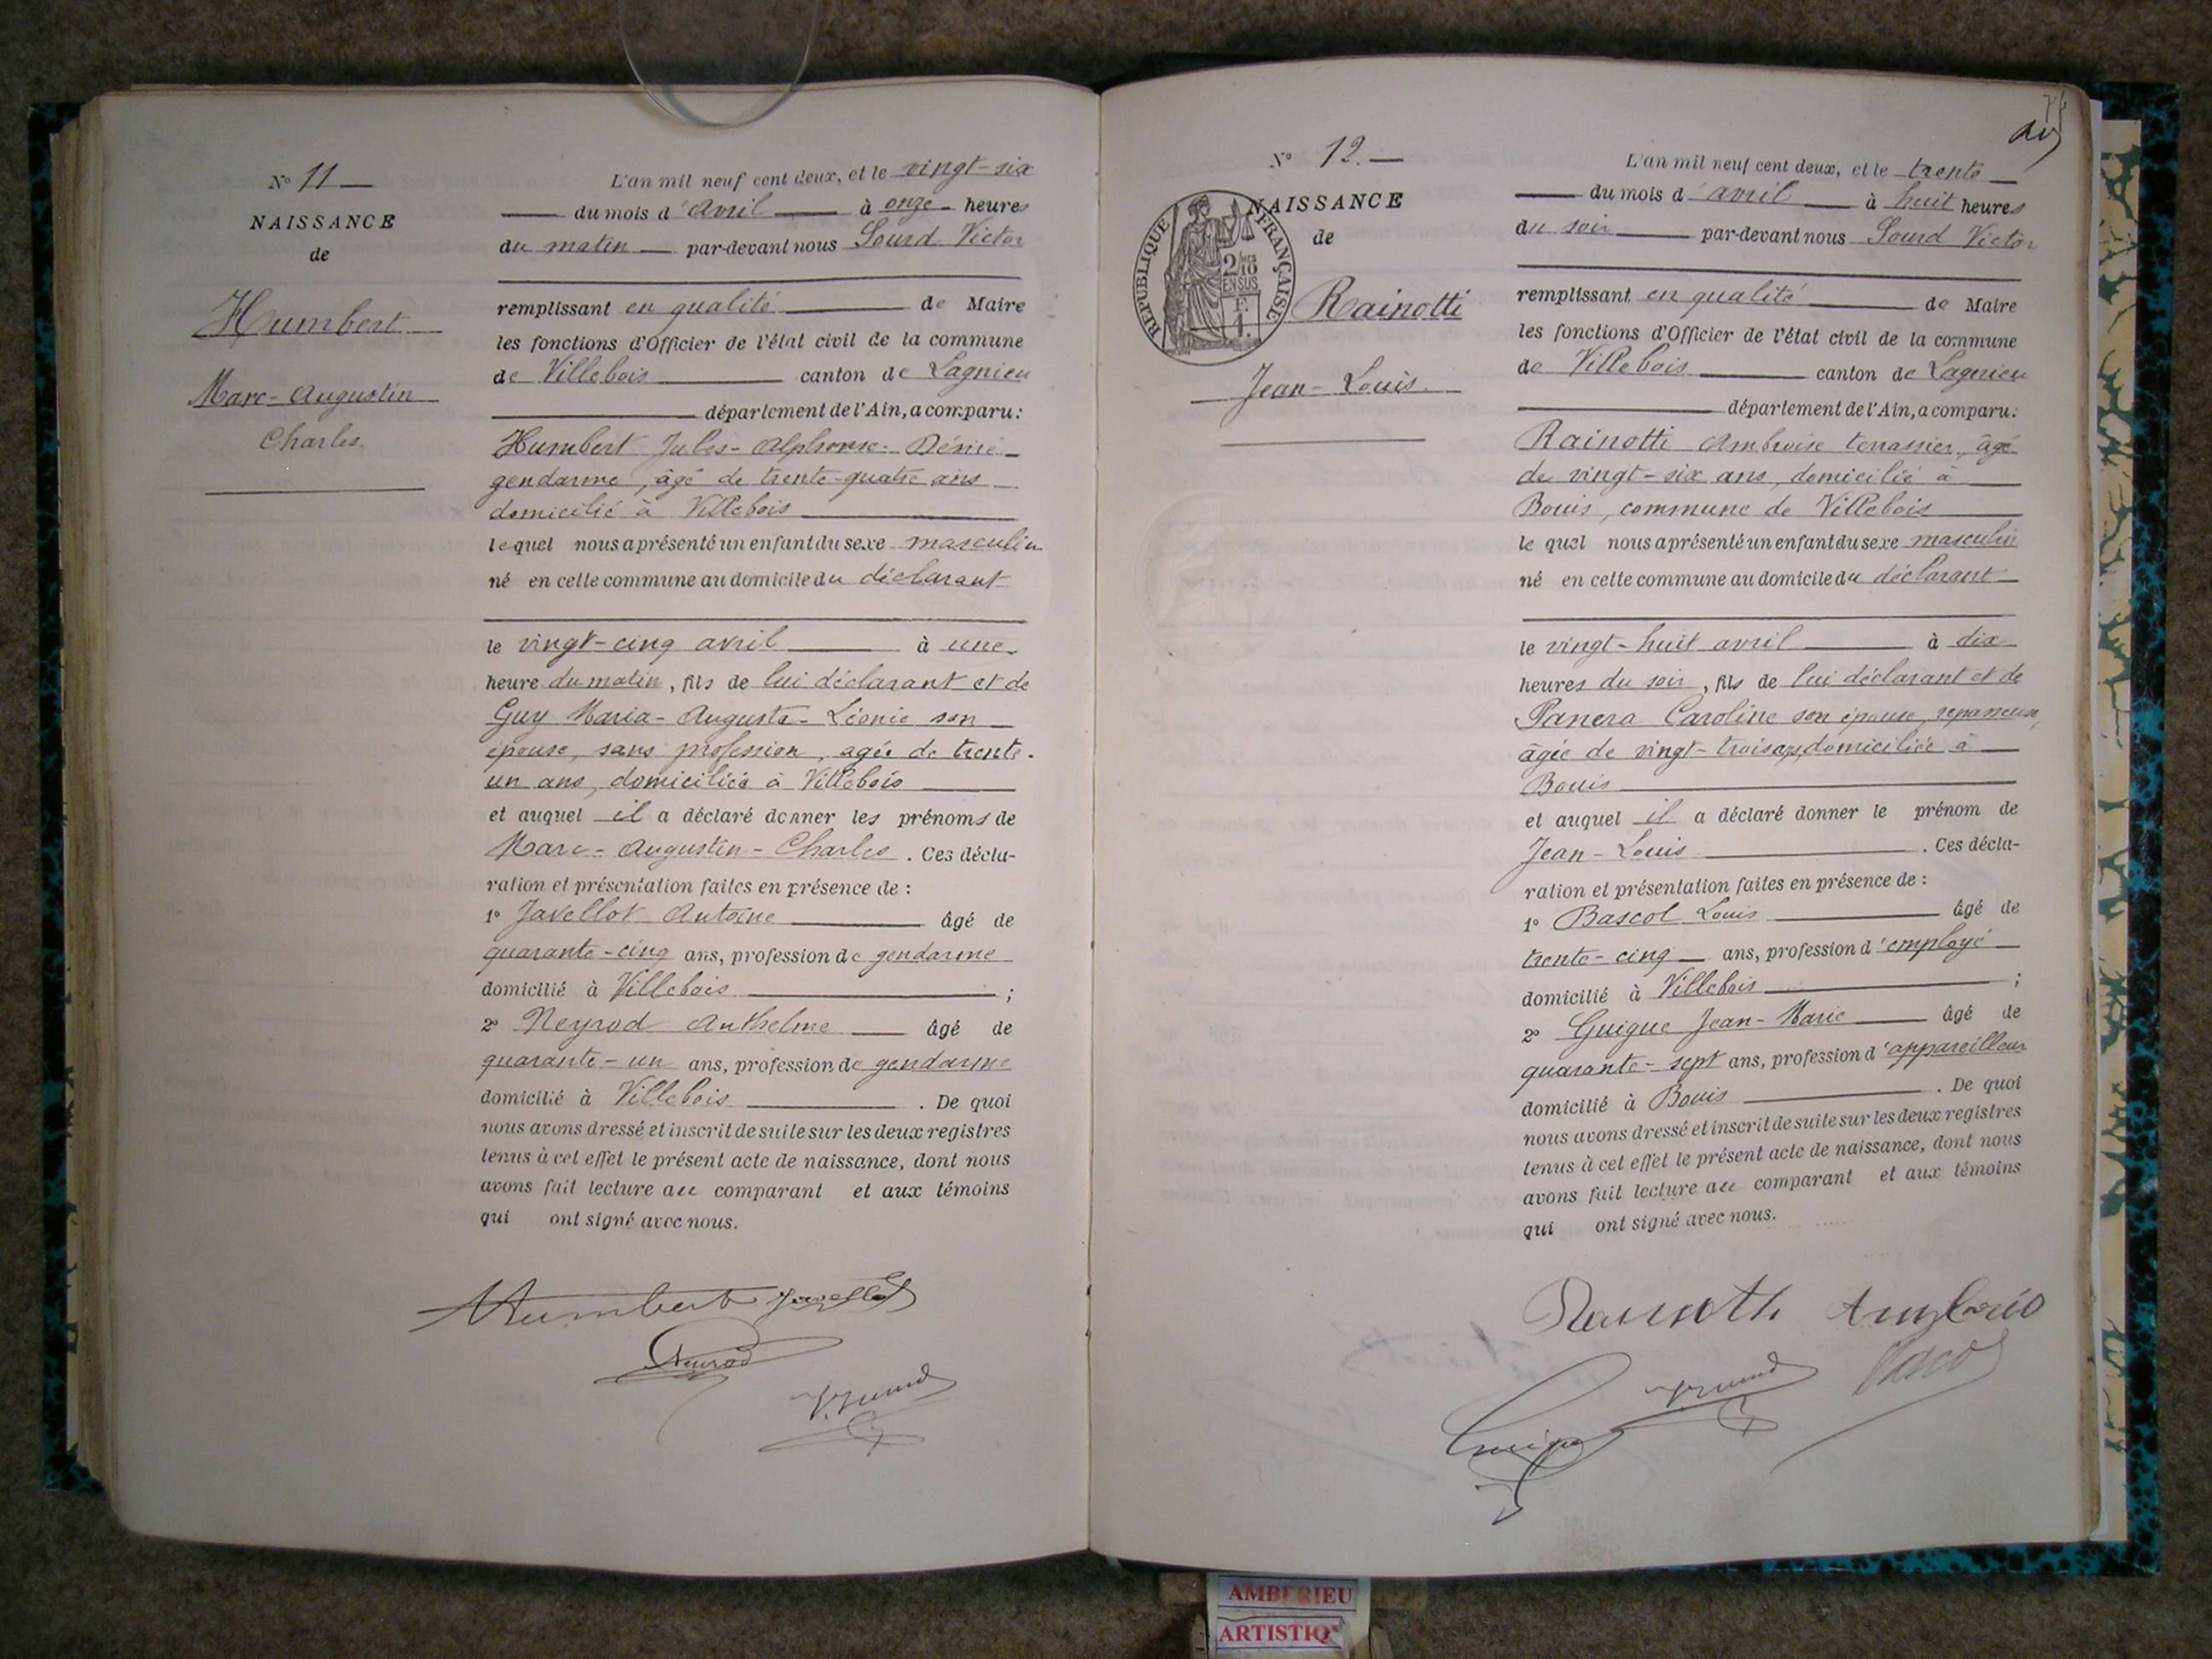 N° 11
NAISSANCE
de
Humbert
Marc-Augustin
Charles.
L'an mil neuf cent deux, et le vingt-six
du mois d'avril à onze heures
du matin par-devant nous Sourd Victor
remplissant en qualité de Maire
les fonctions d'Officier de l'état civil de la commune
de Villebois canton de Lagnieu
département de l'Ain, a comparu:
Humbert Jules-Alphonse-Désiré
gendarme, âgé de trente-quatre ans
domicilié à Villebois
lequel nous a présenté un enfant du sexe masculin
né en cette commune au domicile du déclarant
le vingt-cinq avril à une
heure du matin, fils de lui déclarant et de
Guy Maria-Augusta-Léonie son
épouse, sans profession, agée de trente-
un ans, domiciliée à Villebois
et auquel il a déclaré donner les prénoms de
Marc-Augustin-Charles. Ces décla-
ration et présentation faites en présence de :
1° Javellot Antoine âgé de
quarante-cinq ans, profession de gendarme
domicilié à Villebois ;
2° Neyrod Anthelme âgé de
quarante-un ans, profession de gendarme
domicilié à Villebois. De quoi
nous avons dressé et inscrit de suite sur les deux registres
tenus à cet effet le présent acte de naissance, dont nous
avons fait lecture au comparant et aux témoins
qui ont signé avec nous.
Humbert Javellot
Neyrod
V. Sourd
N° 12.
NAISSANCE
de
RÉPUBLIQUE FRANÇAISE
2/10
EN SUS
Rainotti
Jean-Louis.
L'an mil neuf cent deux, et le trente
du mois d'avril à huit heures
du soir par-devant nous Sourd Victor
remplissant en qualité de Maire
les fonctions d'Officier de l'état civil de la commune
de Villebois canton de Lagnieu
département de l'Ain, a comparu:
Rainotti Ambroise terrassier, âgé
de vingt-six ans, domicilié à
Bouis, commune de Villebois
lequel nous a présenté un enfant du sexe masculin
né en cette commune au domicile du déclarant
le vingt-huit avril à dix
heures du soir, fils de lui déclarant et de
Panera Caroline son épouse, repasseuse,
âgée de vingt-trois ans, domiciliée à
Bouis
et auquel il a déclaré donner le prénom de
Jean-Louis. Ces décla-
ration et présentation faites en présence de :
1° Bascol Louis âgé de
trente-cinq ans, profession d'employé
domicilié à Villebois ;
2° Guigue Jean-Marie âgé de
quarante-sept ans, profession d'appareilleur
domicilié à Bouis. De quoi
nous avons dressé et inscrit de suite sur les deux registres
tenus à cet effet le présent acte de naissance, dont nous
avons fait lecture au comparant et aux témoins
qui ont signé avec nous.
Rainotti
V. Sourd
Guigue
AMBERIEU